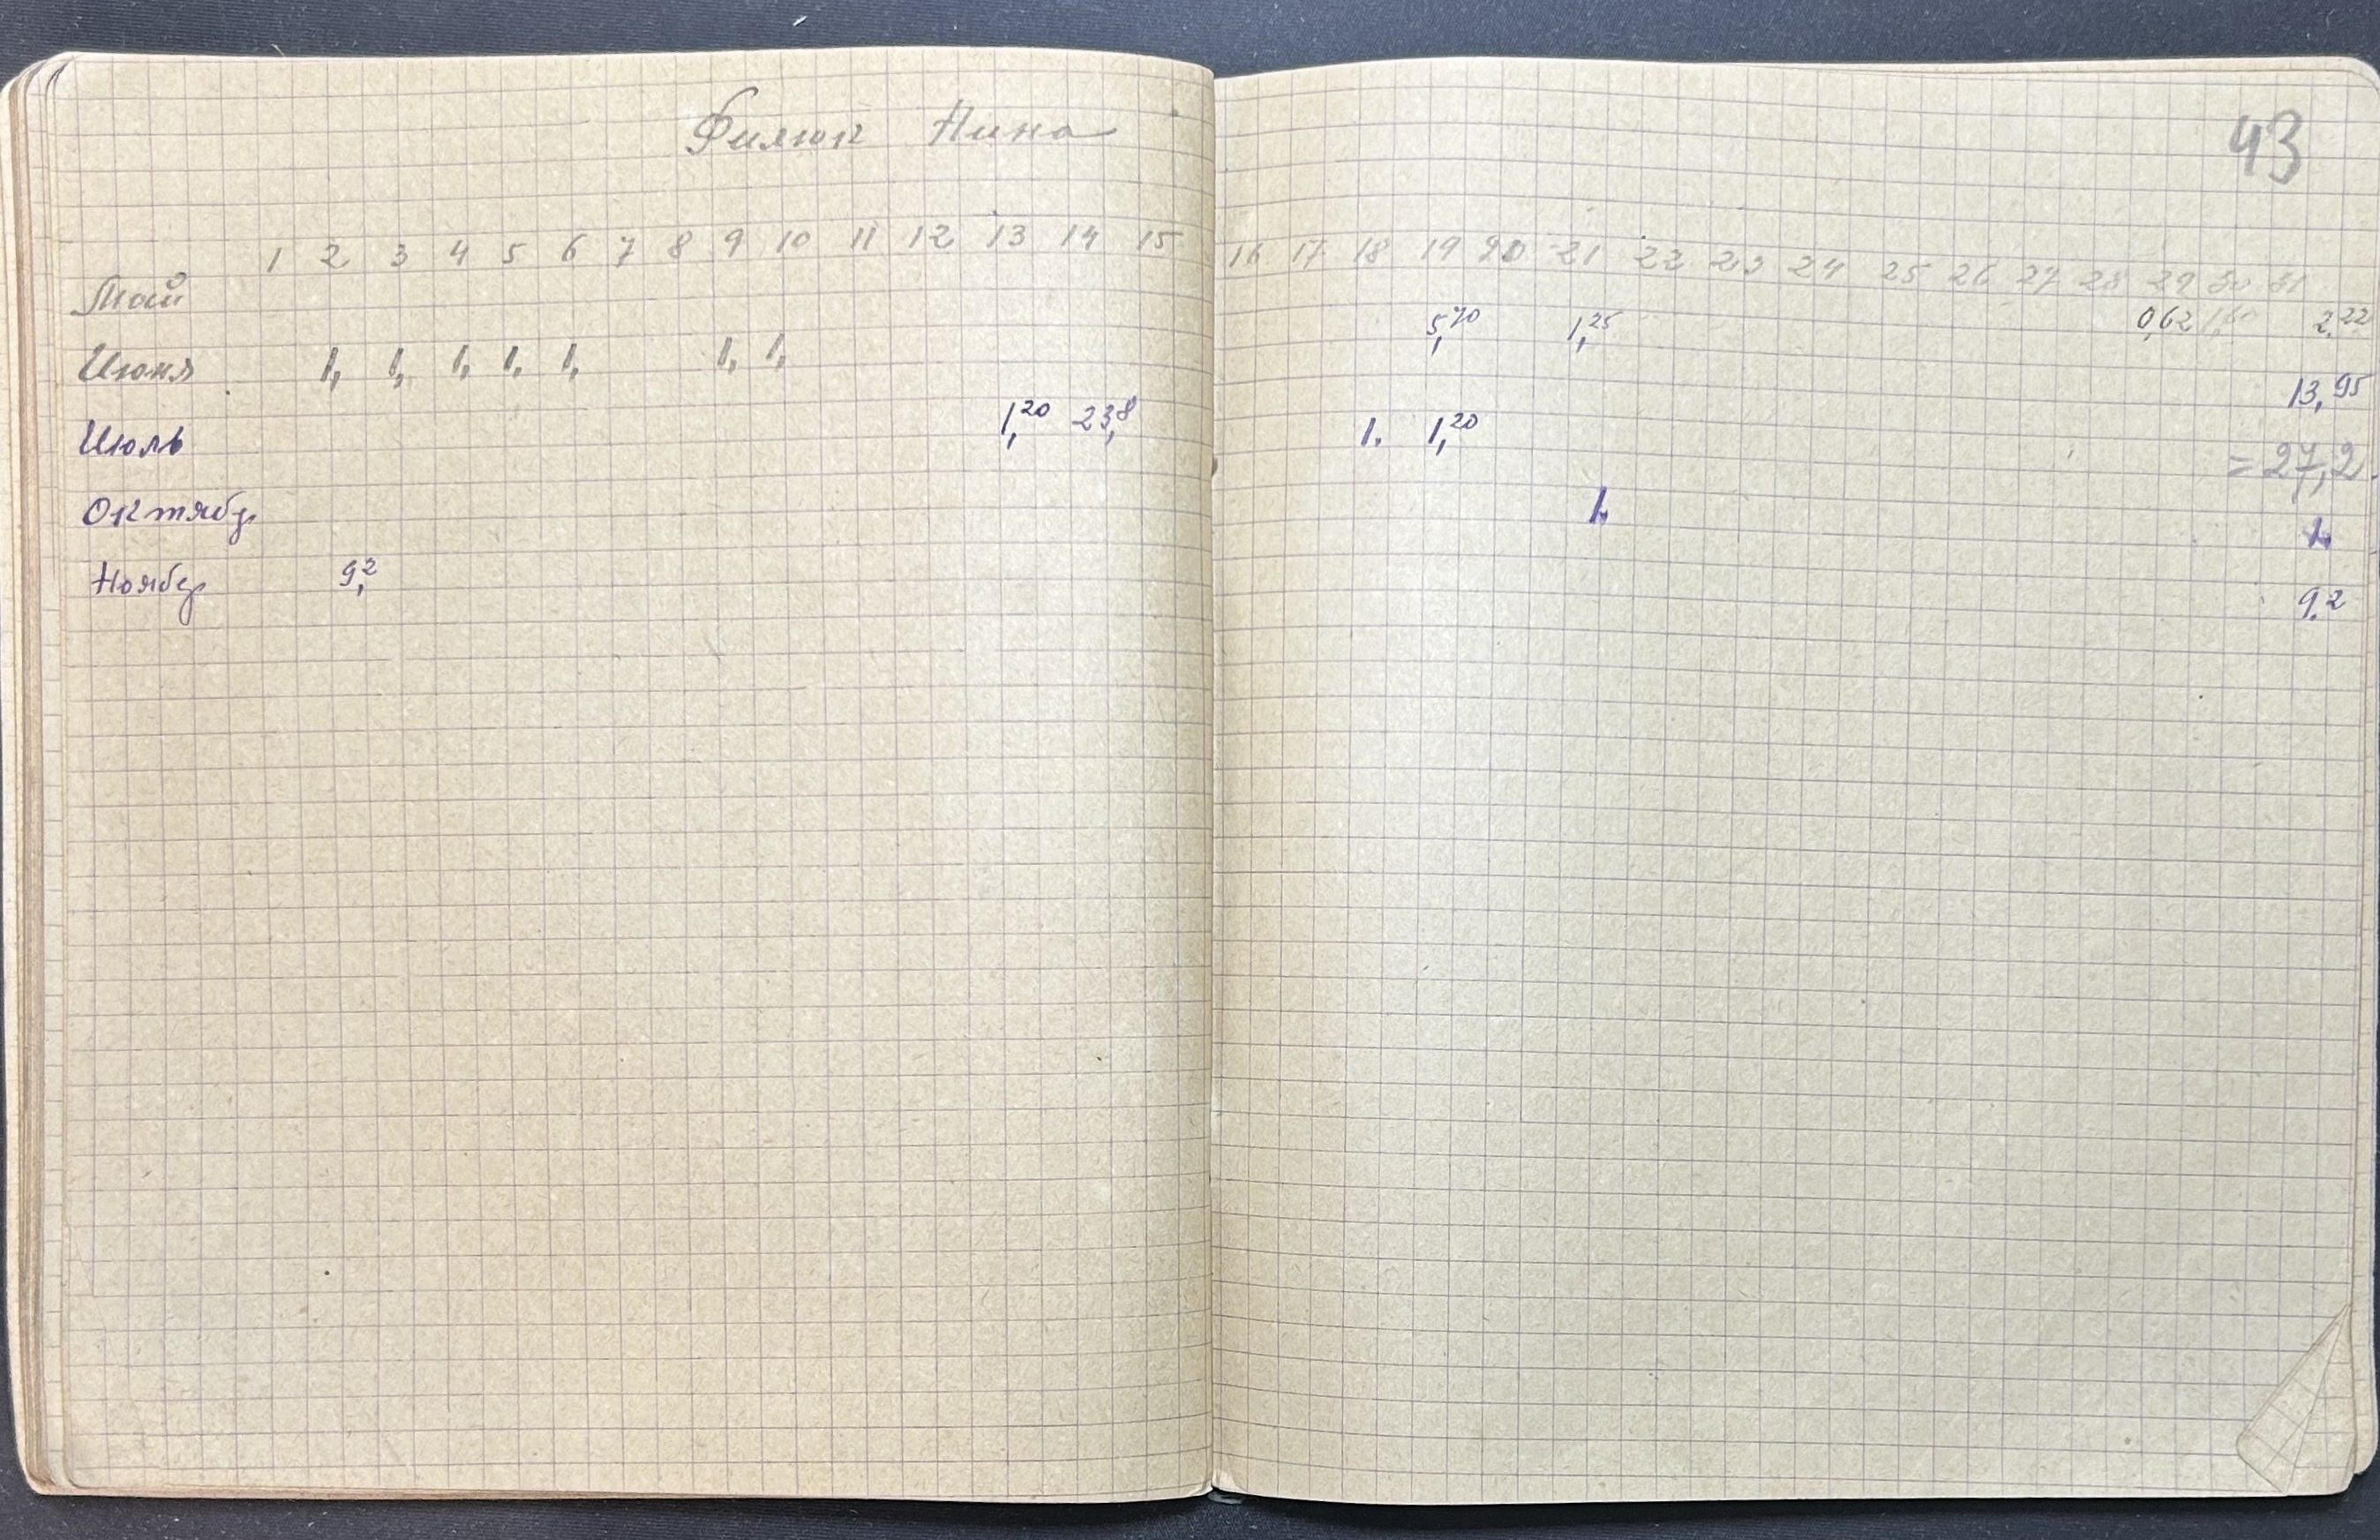 Филюк Нина
43
1 2 3 4 5 6 7 8 9 10 11 12 13 14 15 16 17 18 19 20 21 22 23 24 25 26 27 28 29 30 31
Май 0,62 1,60 2,22
Июня 1, 1, 1, 1, 1, 1, 1, 5,70 1,25 13,95
Июль 1,20 23,8 1. 1,20 = 27,2
Октябр 1. 1.
Ноябр 9,2 9.2